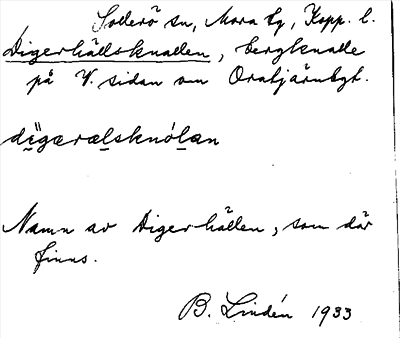 Sollerö sn, Mora tg, Kopp. l.
Digerhällsknallen, bergknalle
på V. sidan om Oratjärnbgt.
Namn av Digerhällen, som där
finns.
B. Lindén 1933